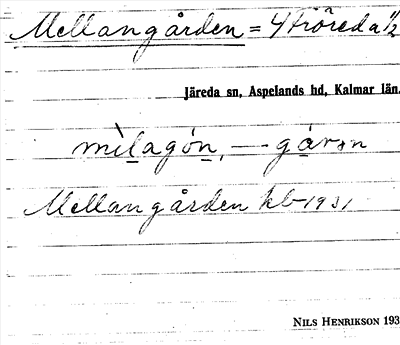 Mellangården = 4 Fröreda 1/2
Järeda sn, Aspelands hd, Kalmar län.
mìlagón, — gárn
Mellangården kb 1931
NILS HENRIKSON 193